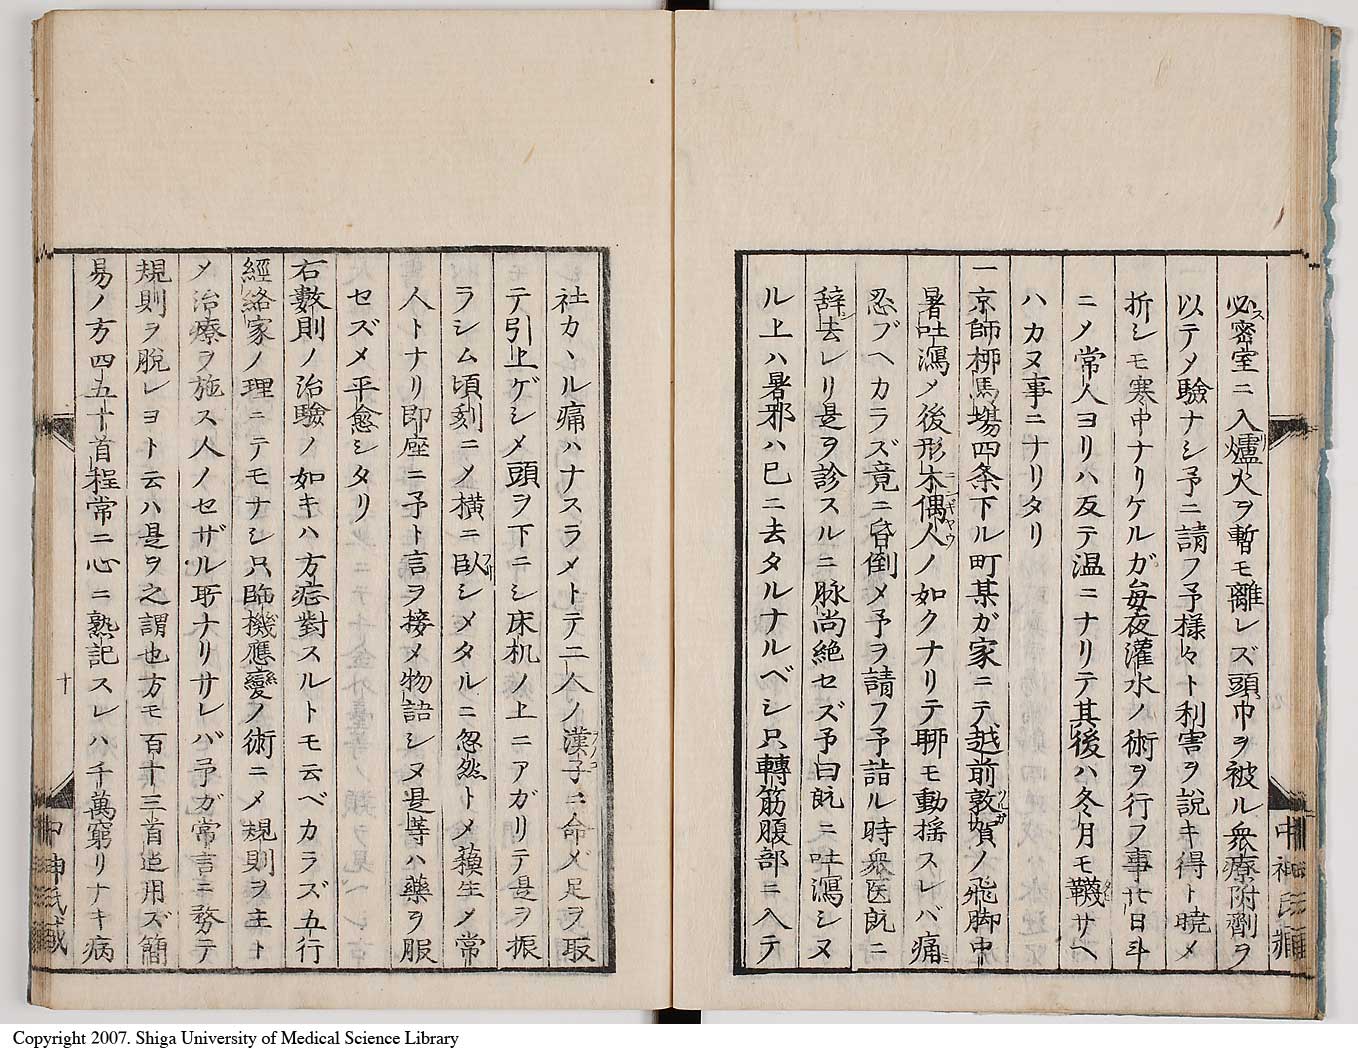 必ス密室ニ入爐火ヲ暫モ離レズ頭巾ヲ被ル衆療附劑ヲ
以テメ驗ナシ予ニ請フ予様々ト利害ヲ説キ得ト曉メ
折シモ寒中ナリケルガ毎夜灌水ノ術ヲ行フ事廿日斗
ニメ常人ヨリハ反テ温ニナリテ其後ハ冬月モ韈サヘ
ハカヌ事ニナリタリ
一京師栁馬場四条下ル町某ガ家ニテ越前敦賀ノ飛脚中
暑吐瀉メ後形木偶人ノ如クナリテ聊モ動揺スレバ痛
忍ブヘカラズ竟ニ昏倒メ予ヲ請フ予詣ル時衆医既ニ
辞シ去レリ是ヲ診スルニ脉尚絶セズ予曰既ニ吐瀉シヌ
ル上ハ暑邪ハ已ニ去タルナルベシ只轉筋腹部ニ入テ
社カヽル痛ハナスラメトテ二人ノ漢子ニ命メ足ヲ取
テ引上ゲシメ頭ヲ下ニシ床机ノ上ニアガリテ是ヲ振
ラシム頃刻ニメ横ニ臥シメタルニ忽然トメ蘓生メ常
人トナリ即座ニ予ト言ヲ接メ物語シヌ是等ハ藥ヲ服
セズメ平愈シタリ
右數則ノ治驗ノ如キハ方症對スルトモ云ベカラズ五行
經絡家ノ理ニテモナシ只臨機應變ノ術ニメ規則ヲ主ト
メ治療ヲ施ス人ノセザル所ナリサレバ予ガ常言ニ務テ
規則ヲ脱レヨト云ハ是ヲ之謂也方モ百十三首迠用ズ簡
易ノ方四五十首程常ニ心ニ熟記スレハ千萬窮リナキ病
十
Copyright 2007. Shiga University of Medical Science Library